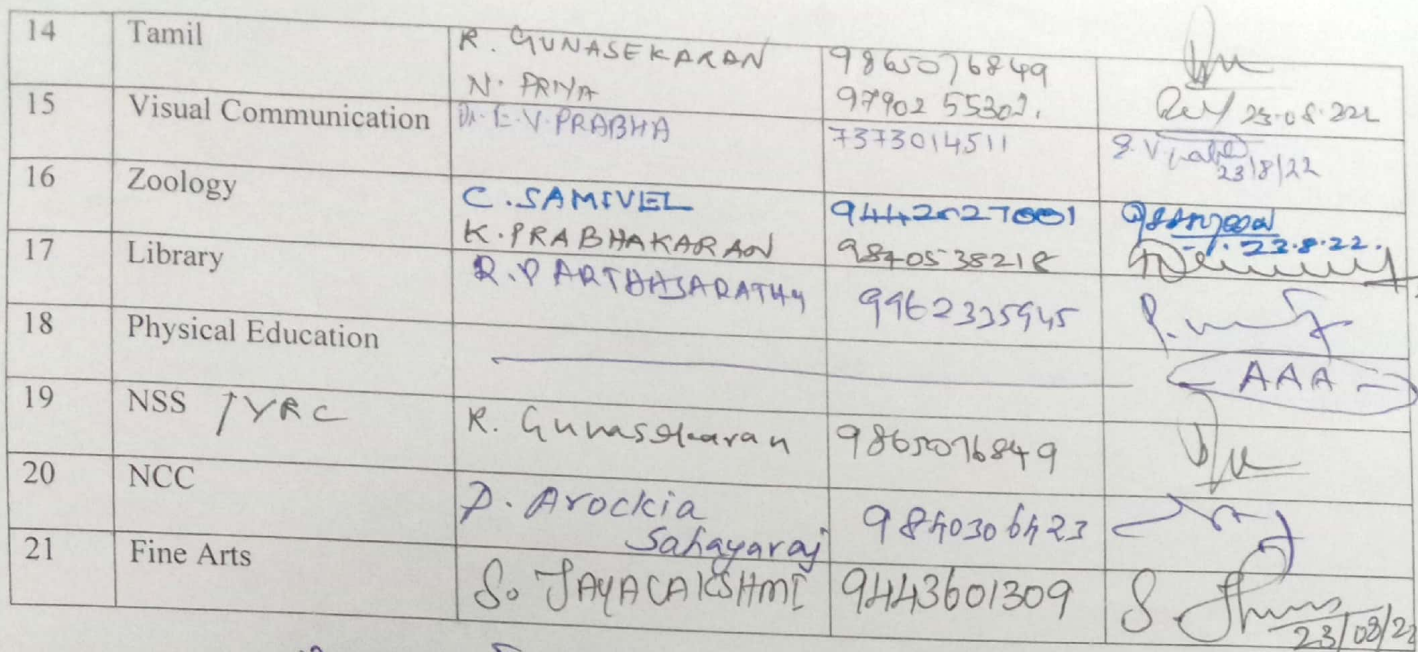 14 Tamil R. GUNASEKARAN 9865076849
N. PRIYA 97902 55302. 23.08.22
15 Visual Communication Dr. E. V. PRABHA 7373014511 23/8/22
16 Zoology C. SAMIVEL 23.8.22.
K. PRABHAKARAN 9840538218
17 Library R. PARTHASARATHY 9962335945
18 Physical Education AAA
19 NSS / YRC R. Gunasekaran 9865076849
20 NCC P. Arockia 9840306423
Sahayaraj
21 Fine Arts S. JAYALAKSHMI 9443601309 23/08/22